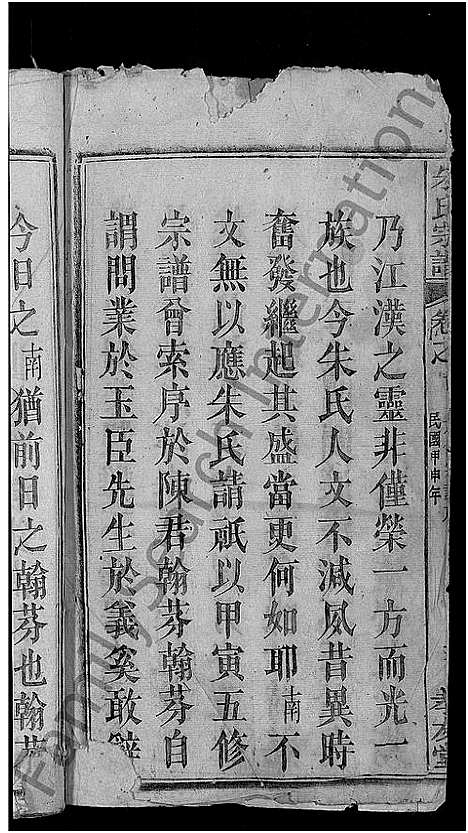 朱氏宗譜 卷之 民國甲申年
乃江漢之靈非僅榮一方而光一
族也今朱氏人文不減夙昔異時
奮發繼起其盛當更何如耶南不
文無以應朱氏請祇以甲寅五修
宗譜曾索序於陳君翰芬翰芬自
謂問業於玉臣先生於義奚敢辭
今日之南猶前日之翰芬也翰芬
FamilySearch International